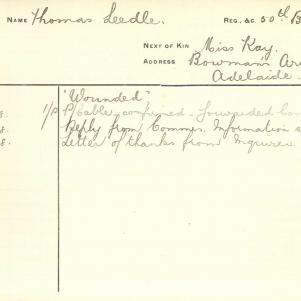 NAME Thomas Leedle. REG. &C. 50th B
NEXT OF KIN Miss Kay.
ADDRESS Bowman's Ar
Adelaide.
"Wounded"
8. 1/P P/Cable confirmed. forwarded Con
8. Reply from Commrs. Information s
8. Letter of thanks from Inquirer